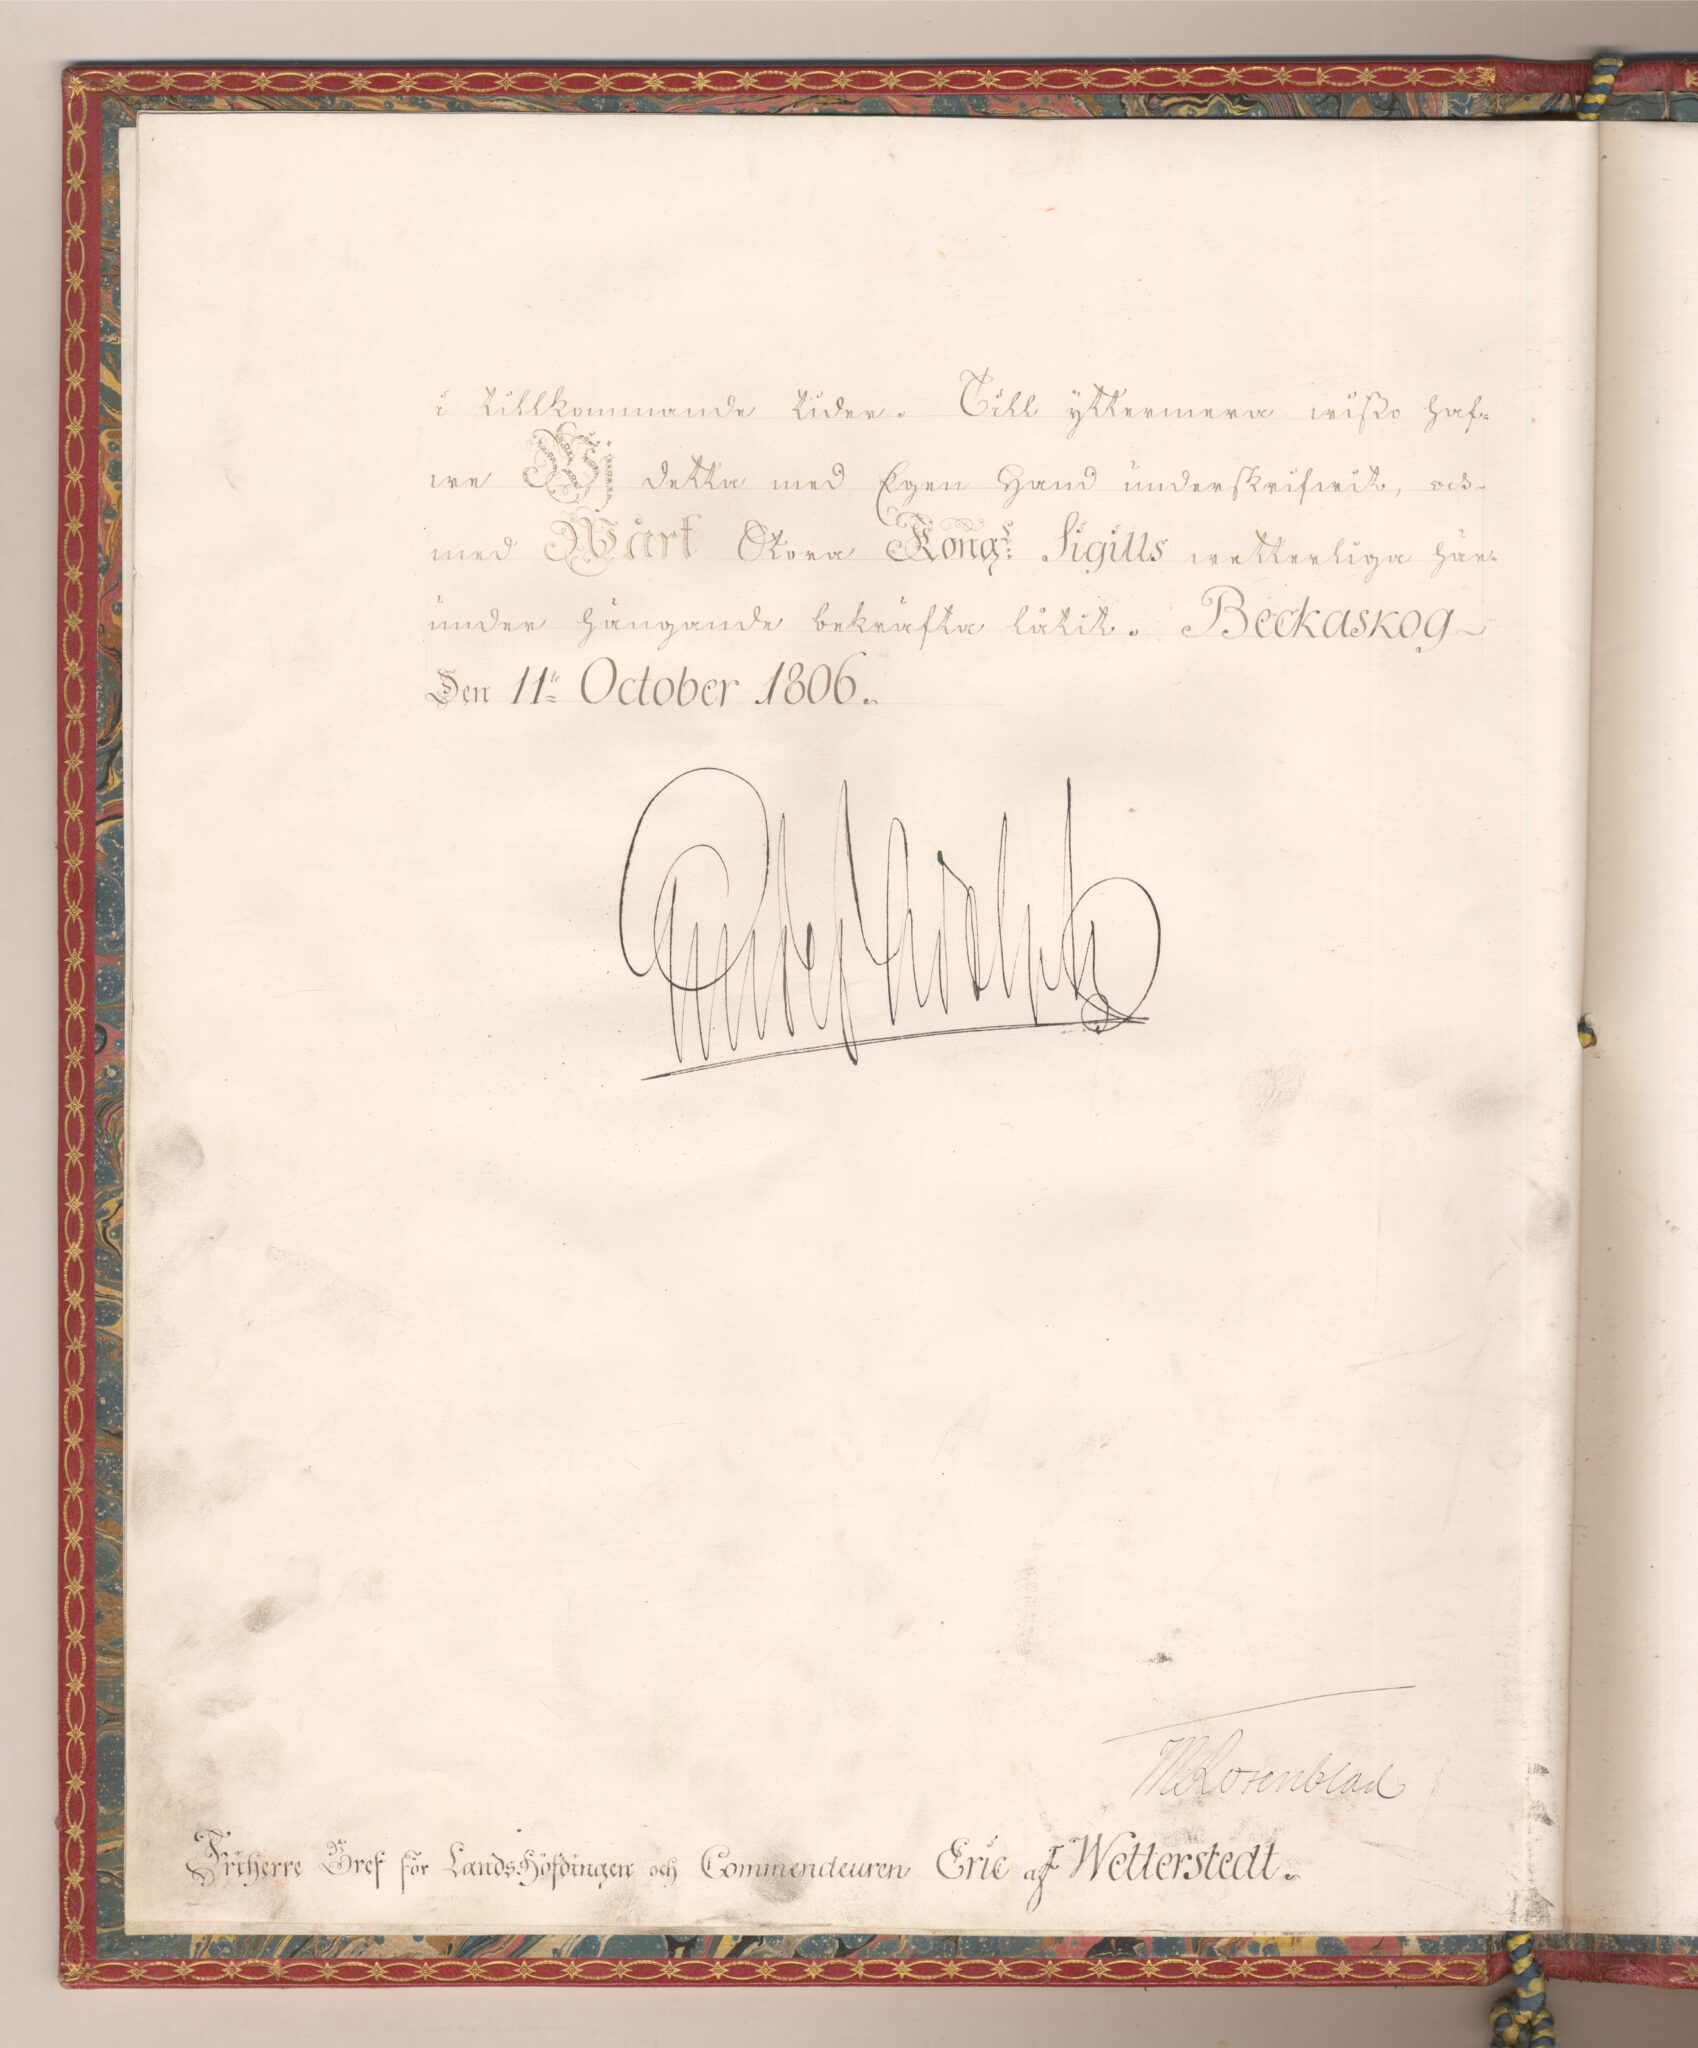 i tillkommande tider. Till yttermera wisso haf-
we Wi detta med Egen Hand underskrifwit, och
med Wårt Stora Kongl: Sigills wetterliga här-
under hängande bekräfta låtit. Beckaskog
Den 11te October 1806.
Gustaf Adolph
MRosenblad
Friherre Bref för Lands-Höfdingen och Commendeuren Eric af Wetterstedt.